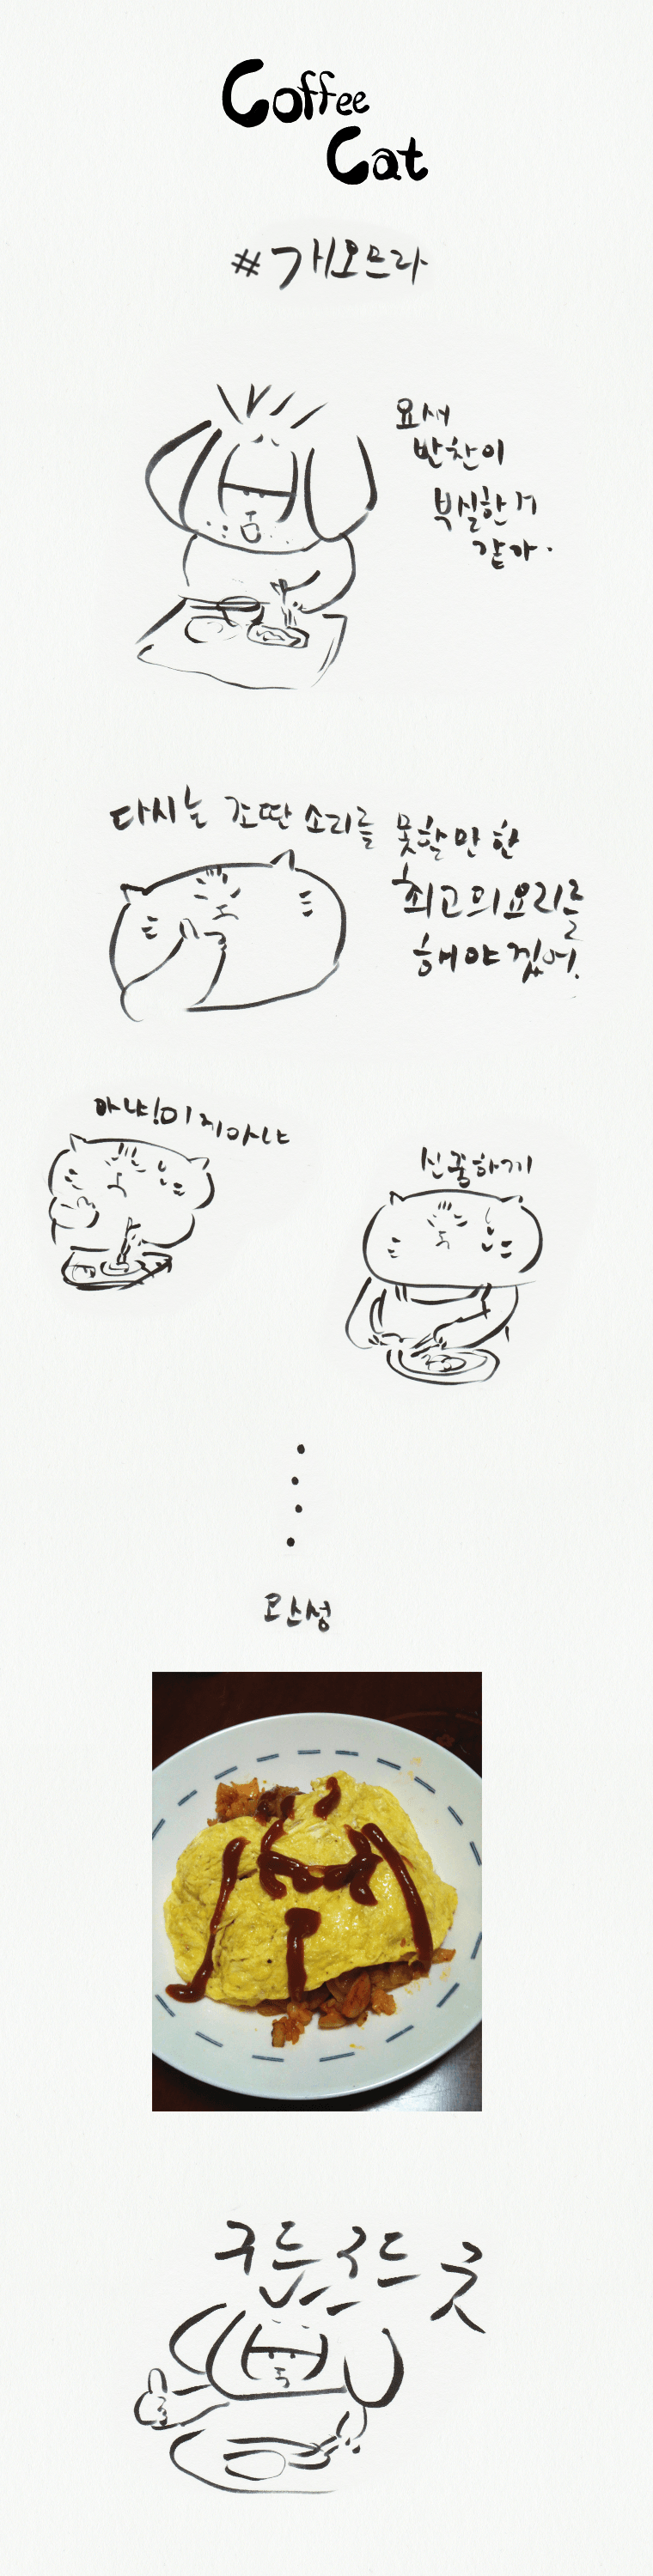 Coffee
Cat
#개오므라
요새
반찬이
부실한거
같아.
다시는 그딴 소리를 못할만한
최고의요리를
해야겠어.
아냐!이게아냐
신중하게
완성
구드구드굿